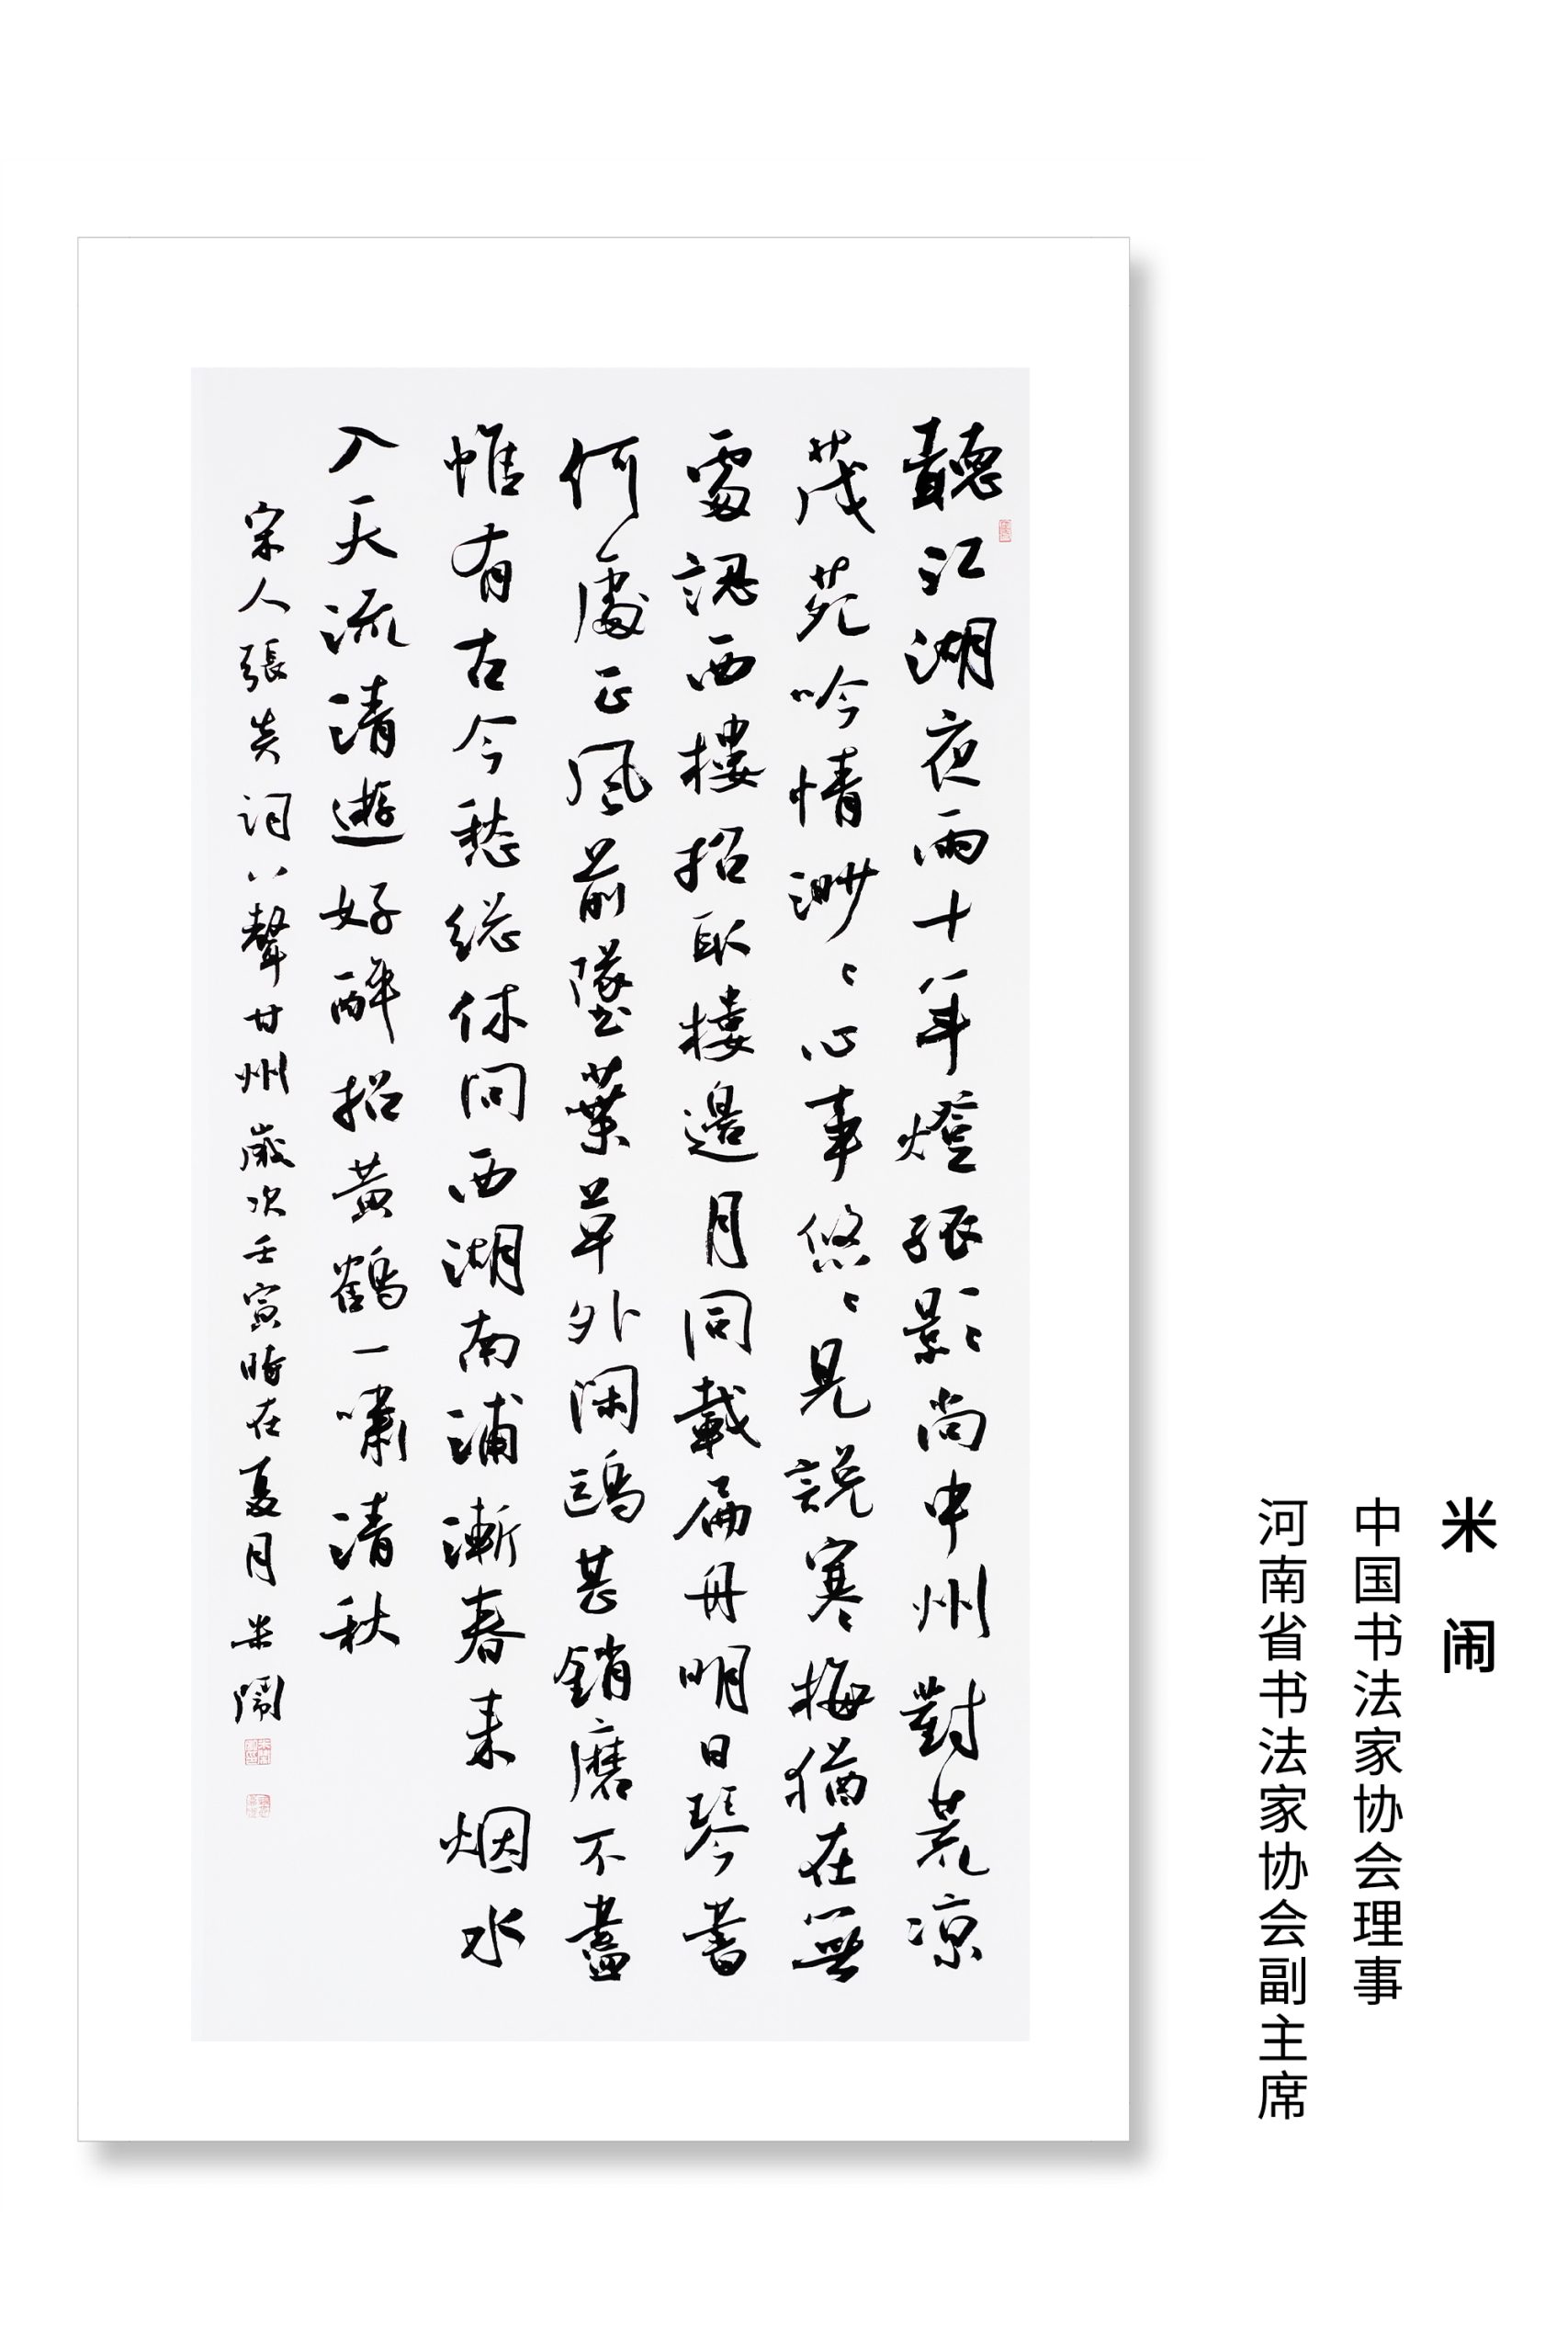 米闹
中国书法家协会理事
河南省书法家协会副主席
聽江湖夜雨十年燈孤影尚中州對荒凉
茂苑吟情渺〻心事悠〻見説寒梅猶在無
處認西樓招取樓邊月同載扁舟明日琴書
何處正風前墜葉草外閑鷗甚銷磨不盡
惟有古今愁總休問西湖南浦漸春来烟水
入天流清遊好醉招黄鶴一嘯清秋
宋人張炎詞八聲甘州歲次壬寅時在夏月米鬧